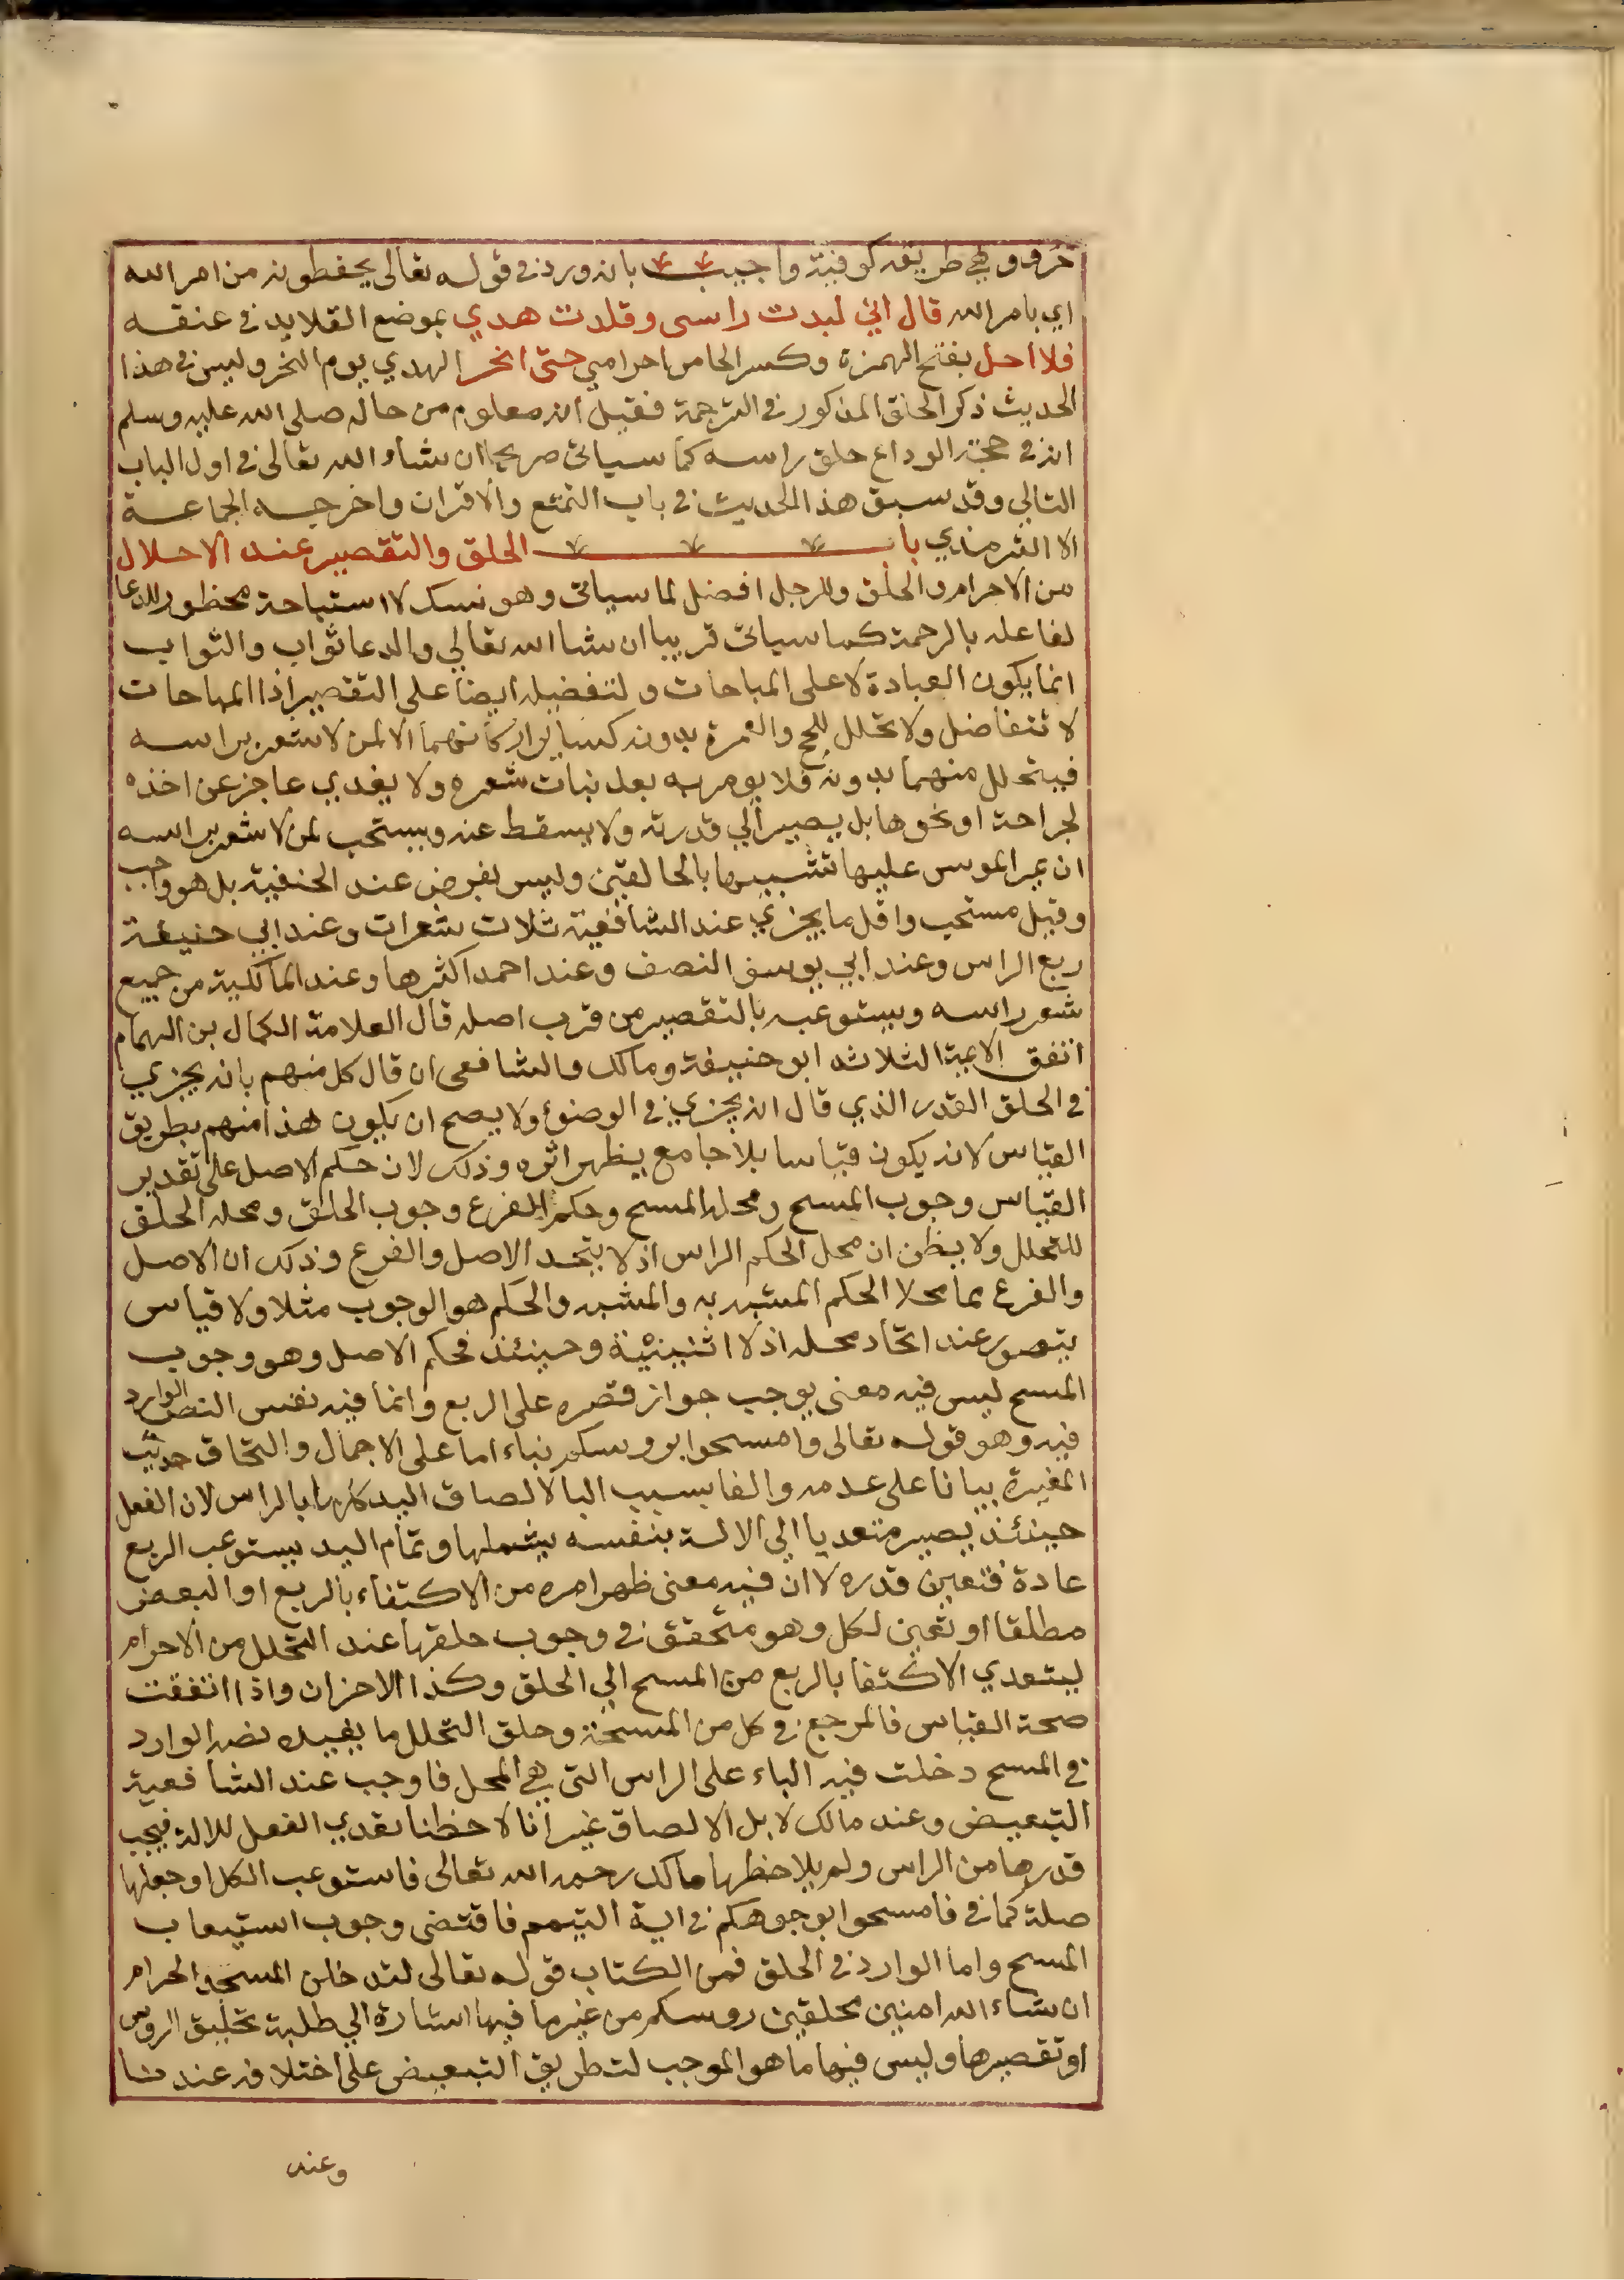 حروف وهي طريقه كوفية واجيب بانه ورد في قوله تعالى يحفظونه من امر الله
اي بامر الله قال اني لبدت راسى وقلدت هديي بموضع القلايد في عنقه
فلا احل بفتح الهمزة وكسر الحا من احرامي حتى انحر الهدي يوم النحر وليس في هذا
الحديث ذكر الحلق المذكور في الترجمة فقيل انه معلوم من حاله صلى الله عليه وسلم
انه في حجة الوداع حلق راسه كما سياتى صريحا ان شاء الله تعالى في اول الباب
التالي وقد سبق هذا الحديث في باب التمتع والاقران واخرجه الجماعة
الا الترمذي باب الحلق والتقصير عند الاحلال
من الاحرام والحلق وللرجل افضل لما سياتى وهو نسك لا استباحة محظور للدعا
لفاعله بالرحمة كما سياتى قريبا ان شا الله تعالي والدعا ثواب والثواب
انما يكون العبادة لا على المباحات ولتفضيله ايضا على التقصير اذا المباحات
لا تتفاضل ولا تحلل للحج والعمرة بدونه كساير اركانهما الا لمن لا شعر براسه
فيتحلل منهما بدونه فلا يومر به بعد نبات شعره ولا يفدي عاجز عن اخذه
لجراحة او نحوها بل يصبر الي قدرته ولا يسقط عنه ويستحب لمن لا شعر براسه
ان يمر الموسى عليها تشبيها بالحالقين وليس بفرض عند الحنفية بل هو واجب
وقيل مستحب واقل ما يجزي عند الشافعية ثلاث شعرات وعند ابي حنيفة
ربع الراس وعند ابي يوسف النصف وعند احمد اكثرها وعند المالكية من جميع
شعر راسه ويستوعبه بالتقصير من قرب اصله قال العلامة الكمال بن الهمام
اتفق الايمة الثلاثه ابو حنيفة ومالك والشافعى ان قال كل منهم بانه يجزي
في الحلق القدر الذي قال انه يجزي في الوضوء ولا يصح ان يكون هذا منهم بطريق
القياس لانه يكون قياسا بلا جامع يظهر اثره وذلك لان حكم الاصل على تقدير
القياس وجوب المسح ومحله المسح وحكم الفرع وجوب الحلق ومحله الحلق
للتحلل ولا يظن ان محل الحكم الراس اذ لا يتحد الاصل والفرع وذلك ان الاصل
والفرع هما محلا الحكم المشبه به والمشبه والحكم هو الوجوب مثلا ولا قياس
يتصور عند اتحاد محله اذ لا اثنينية وحينئذ فحكم الاصل وهو وجوب
المسح ليس فيه معنى يوجب جواز قصره على الربع وانما فيه نفس النص الوارد
فيه وهو قوله تعالى وامسحوا بروسكم بناء اما على الاجمال والتحاق حديث
المغيرة بيانا على عدمه والفا بسبب البا لالصاق اليد كلها بالراس لان الفعل
حينئذ يصير متعديا الي الالة بنفسه يشملها وتمام اليد يستوعب الربع
عادة فتعين قدره لا ان فيه معنى ظهر امره من الاكتفاء بالربع او البعض
مطلقا او تعين لكل وهو متحقق في وجوب حلقها عند التحلل من الاحرام
ليتعدي الاكتفا بالربع من المسح الي الحلق وكذا الاخران واذا انتفقت
صحة القياس فالمرجع في كل من المسحة وحلق التحلل ما يفيده نصه الوارد
في المسح دخلت فيه الباء على الراس التى هي المحل فاوجب عند الشافعية
التبعيض وعند مالك لا بل الالصاق غير انا لاحظنا تعدي الفعل للالة فيجب
قدرها من الراس ولم يلاحظها مالك رحمه الله تعالى فاستوعب الكل او جعلها
صلة كما في فامسحوا بوجوهكم في اية التيمم فاقتضى وجوب استيعاب
المسح واما الوارد في الحلق فمن الكتاب قوله تعالى لتدخلن المسجد الحرام
ان شاء الله امنين محلقين روسكم من غير ما فيها اشارة الي طلبة تحليق الروس
او تقصيرها وليس فيها ما هو الموجب لت طريق التبعيض على اختلافه عندنا
وعند